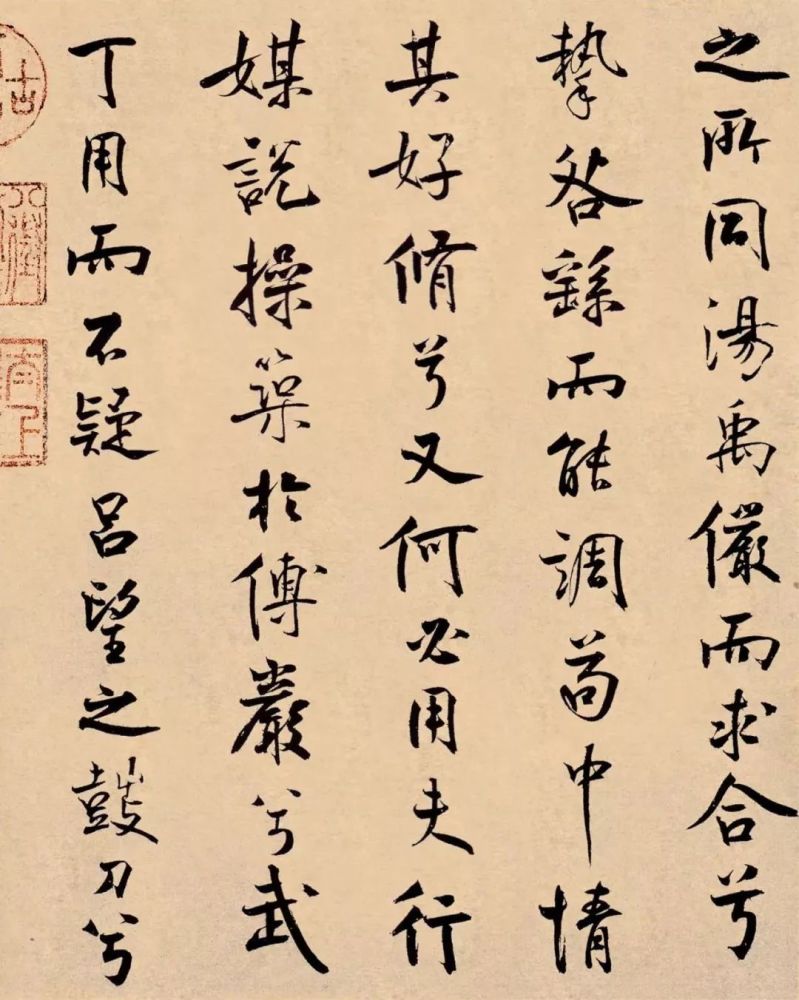 之所同湯禹儼而求合兮
摯咎繇而能調苟中情
其好脩兮又何必用夫行
媒說操築於傅巖兮武
丁用而不疑呂望之鼓刀兮